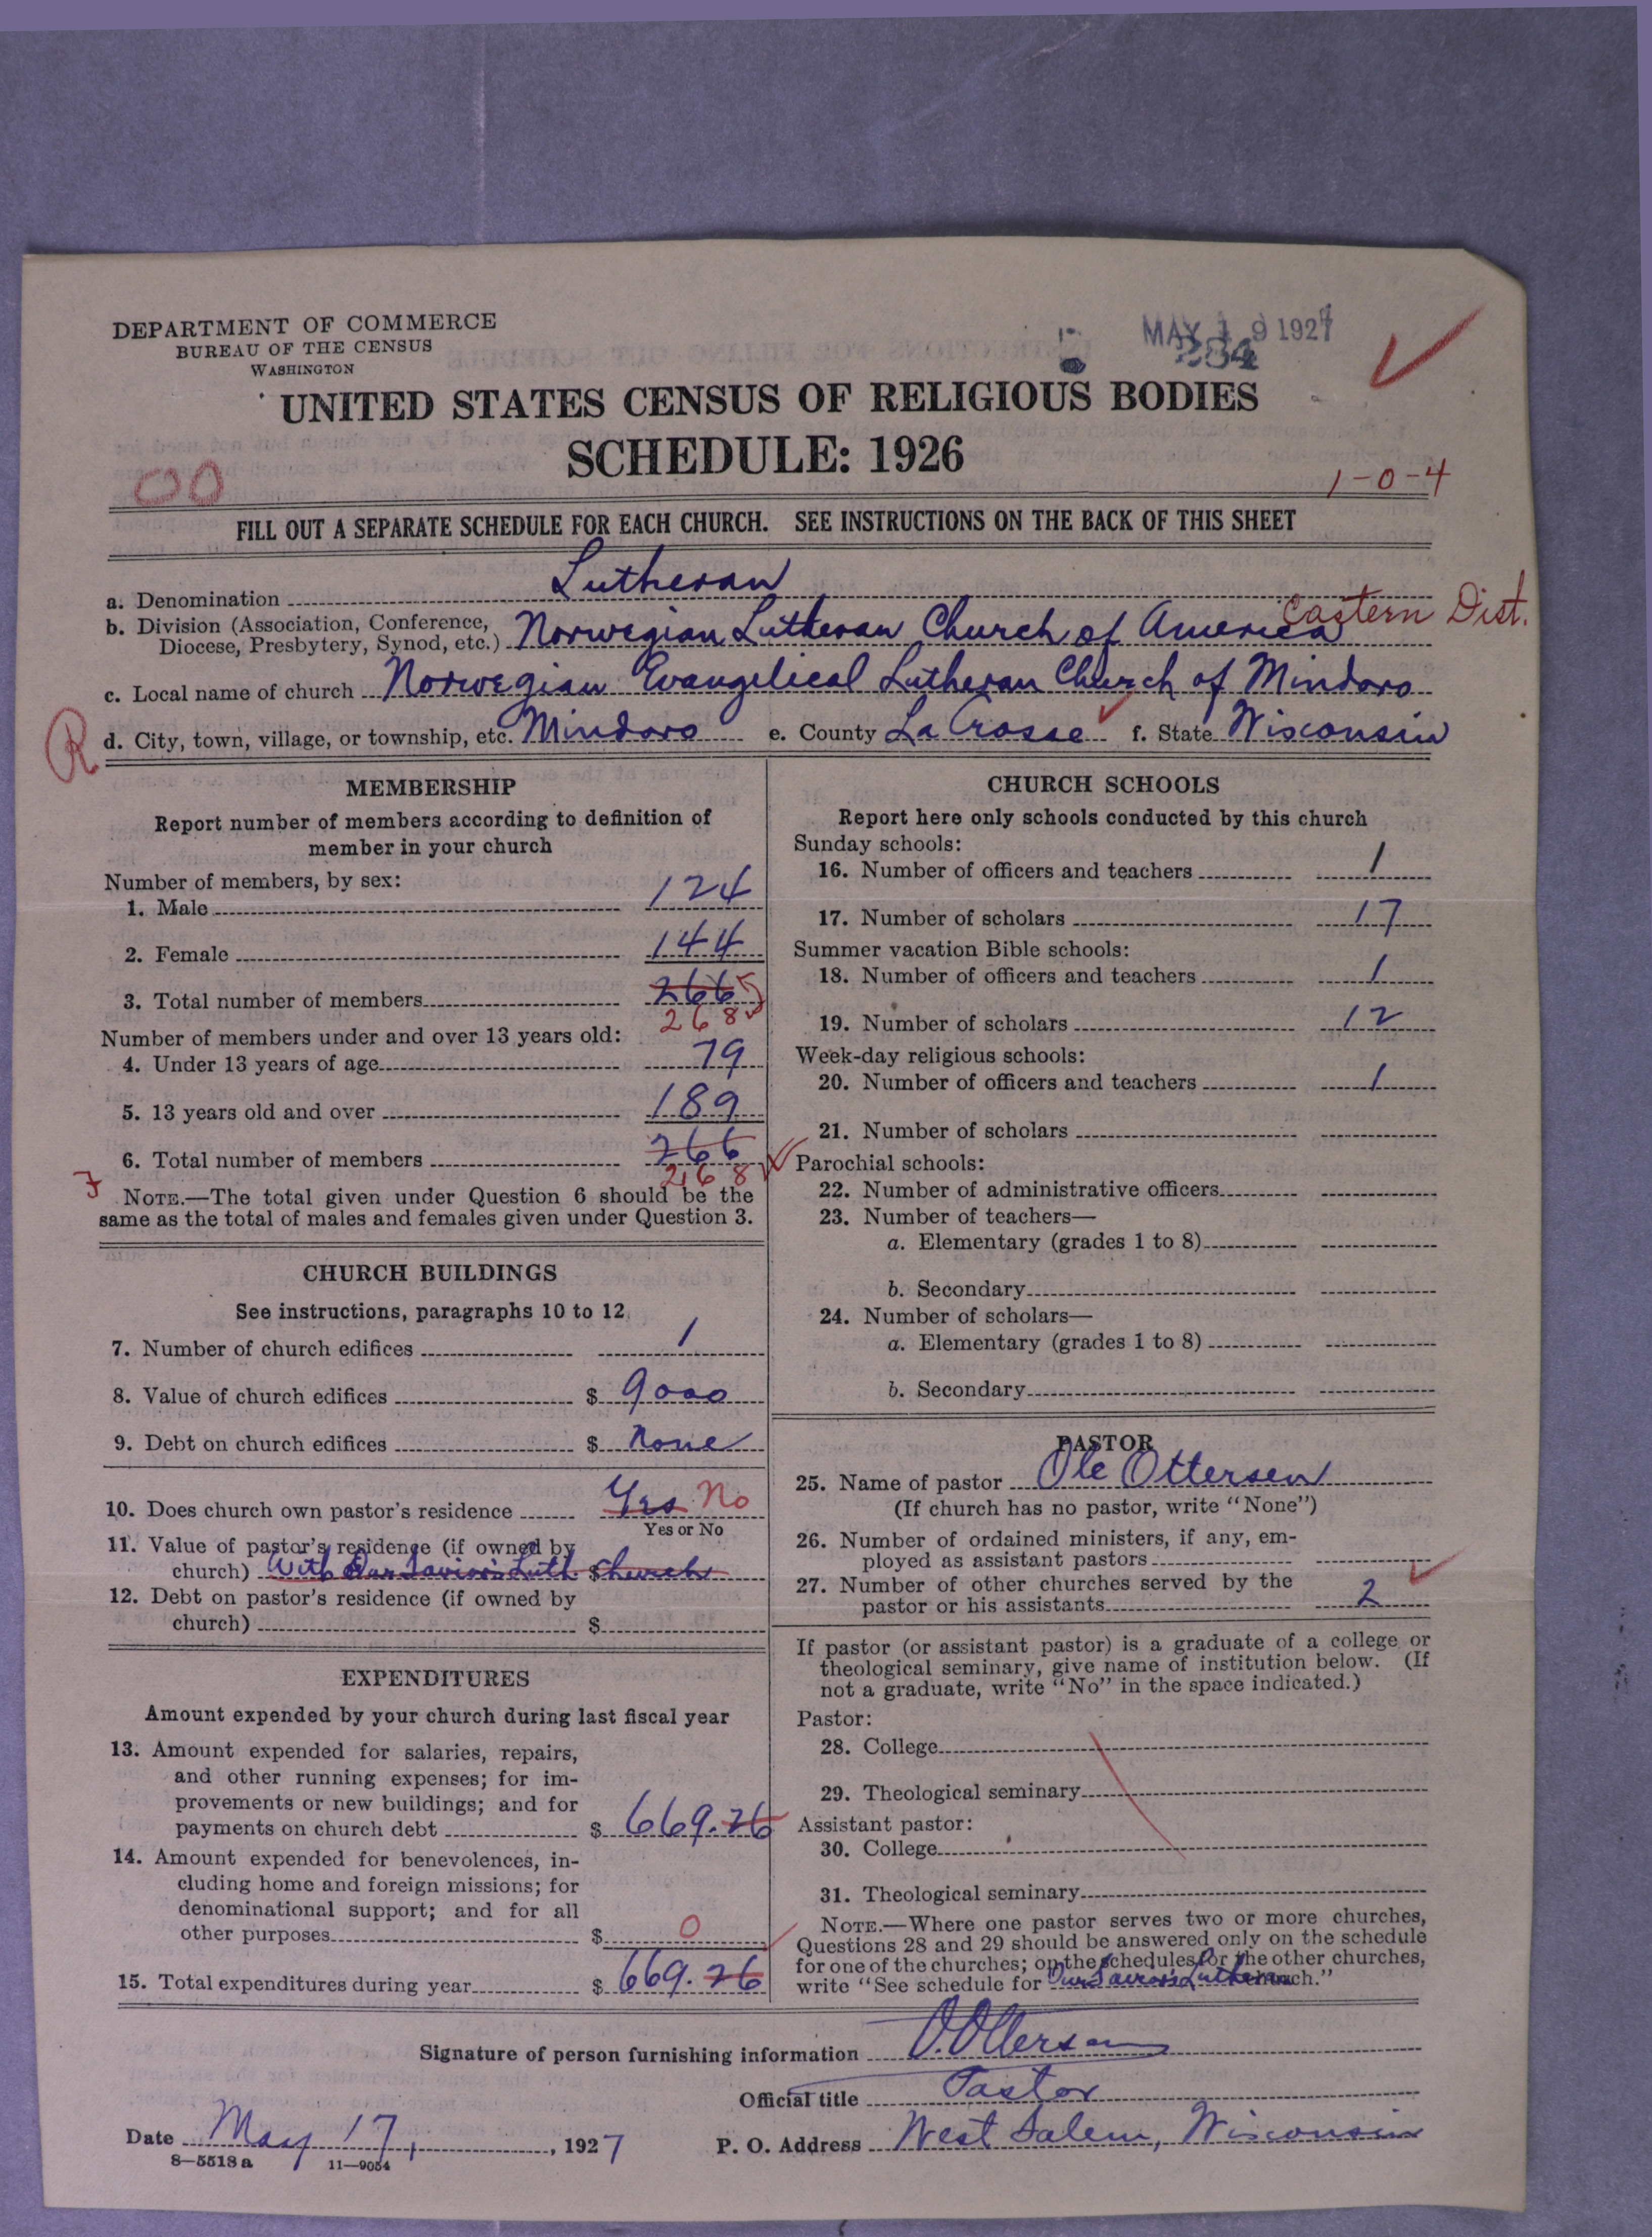 DEPARTMENT OF COMMERCE
BUREAU OF THE CENSUS
WASHINGTON
MAY 19 1927
284
UNITED STATES CENSUS OF RELIGIOUS BODIES
SCHEDULE: 1926
00
1-0-4
FILL OUT A SEPARATE SCHEDULE FOR EACH CHURCH. SEE INSTRUCTIONS ON THE BACK OF THIS SHEET
a. Denomination Lutheran
Eastern Dist.
b. Division (Association, Conference,
Diocese, Presbytery, Synod, etc.) Norwegian Lutheran Church of America
c. Local name of church Norwegian Evangelical Lutheran Church of Mindoro
R
d. City, town, village, or township, etc. Mindoro e. County La Crosse f. State Wisconsin
MEMBERSHIP
Report number of members according to definition of
member in your church
Number of members, by sex:
1. Male 124
2. Female 144
3. Total number of members 266
268
Number of members under and over 13 years old:
4. Under 13 years of age 79
5. 13 years old and over 189
6. Total number of members 266
268
NOTE.—The total given under Question 6 should be the
same as the total of males and females given under Question 3.
CHURCH BUILDINGS
See instructions, paragraphs 10 to 12
7. Number of church edifices 1
8. Value of church edifices $ 9000
9. Debt on church edifices $ None
10. Does church own pastor's residence Yes No
Yes or No
11. Value of pastor's residence (if owned by
church) With Our Savior's Luth. $ Church
12. Debt on pastor's residence (if owned by
church) $
EXPENDITURES
Amount expended by your church during last fiscal year
13. Amount expended for salaries, repairs,
and other running expenses; for im-
provements or new buildings; and for
payments on church debt $ 669.26
14. Amount expended for benevolences, in-
cluding home and foreign missions; for
denominational support; and for all
other purposes $ 0
15. Total expenditures during year $ 669.26
CHURCH SCHOOLS
Report here only schools conducted by this church
Sunday schools:
16. Number of officers and teachers 1
17. Number of scholars 17
Summer vacation Bible schools:
18. Number of officers and teachers 1
19. Number of scholars 12
Week-day religious schools:
20. Number of officers and teachers 1
21. Number of scholars
Parochial schools:
22. Number of administrative officers
23. Number of teachers—
a. Elementary (grades 1 to 8)
b. Secondary
24. Number of scholars—
a. Elementary (grades 1 to 8)
b. Secondary
PASTOR
25. Name of pastor Ole Ottersen
(If church has no pastor, write "None")
26. Number of ordained ministers, if any, em-
ployed as assistant pastors
27. Number of other churches served by the
pastor or his assistants 2
If pastor (or assistant pastor) is a graduate of a college or
theological seminary, give name of institution below. (If
not a graduate, write "No" in the space indicated.)
Pastor:
28. College
29. Theological seminary
Assistant pastor:
30. College
31. Theological seminary
NOTE.—Where one pastor serves two or more churches,
Questions 28 and 29 should be answered only on the schedule
for one of the churches; on the schedules for the other churches,
write "See schedule for Our Savior's Lutheran church."
Signature of person furnishing information O. Ottersen
Official title Pastor
Date May 17, 1927 P. O. Address West Salem, Wisconsin
8—5518 a 11—9054